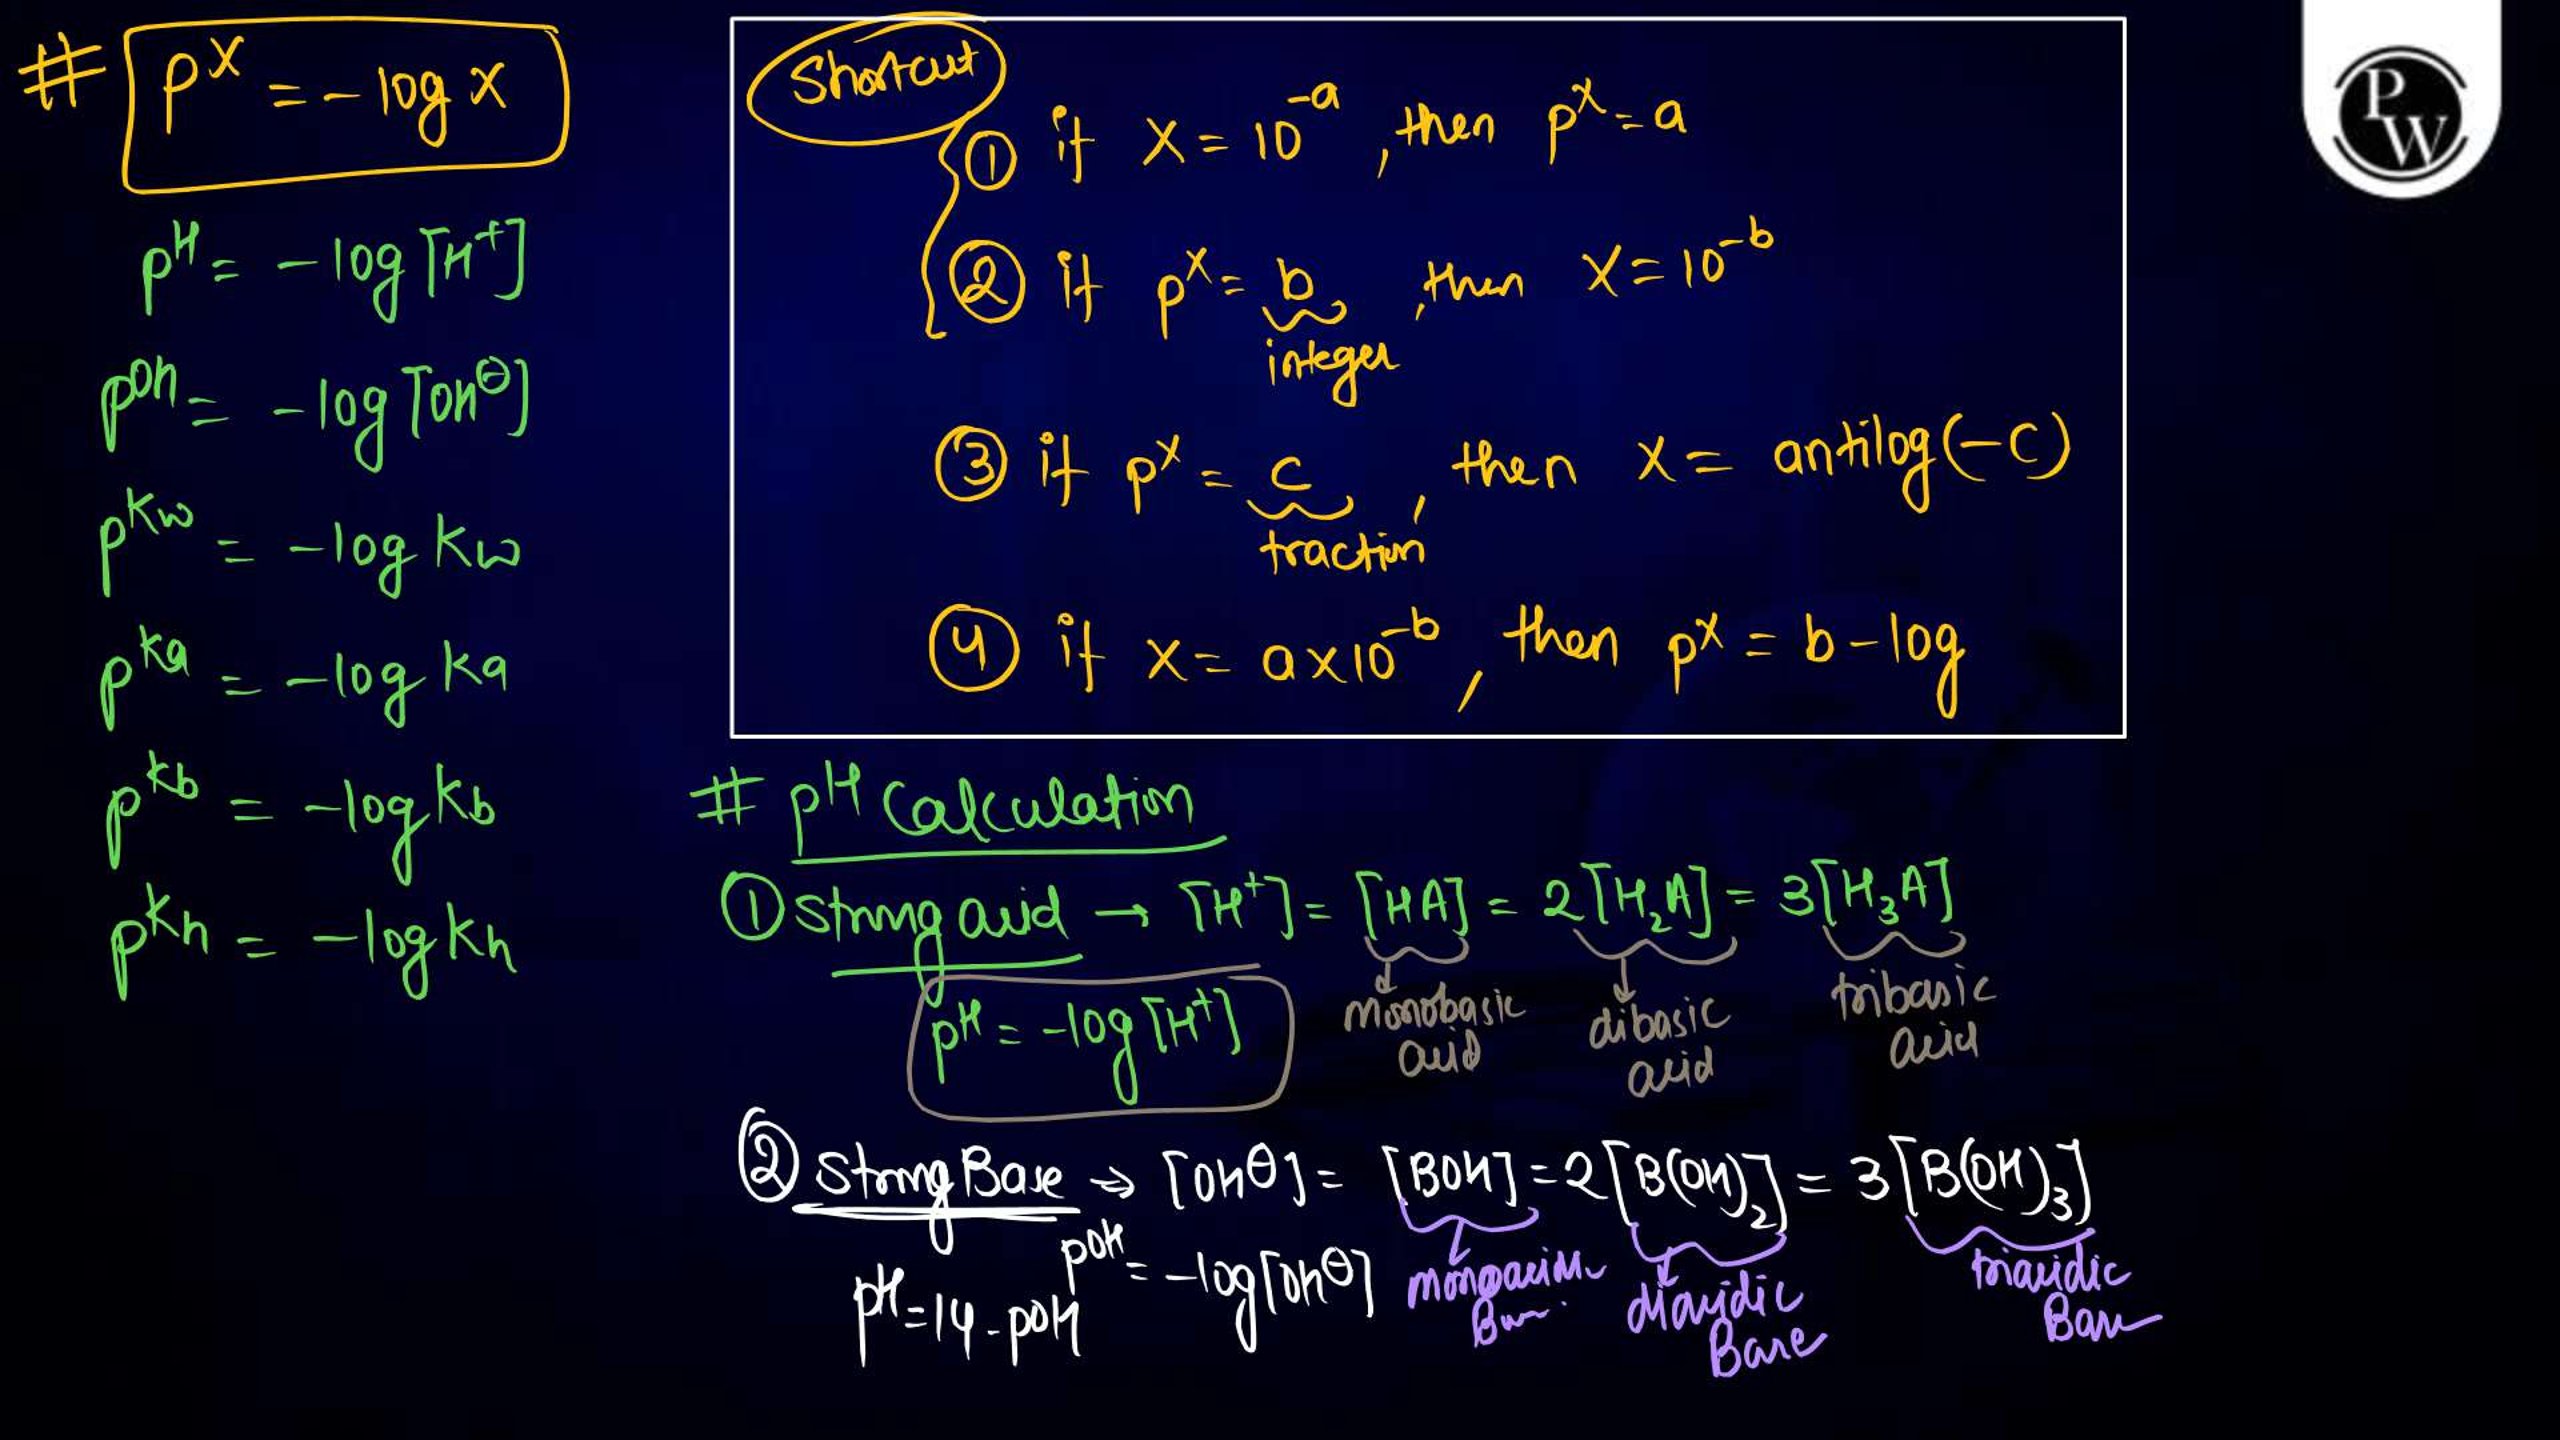 # pX = -log X
pH = -log [H+]
pOH = -log [OH⊖]
pKw = -log Kw
pKa = -log Ka
pKb = -log Kb
pKh = -log Kh
Shortcut
① if X = 10^-a, then pX = a
② if pX = b, then X = 10^-b
integer
③ if pX = c, then X = antilog(-c)
fraction
④ if X = a×10^-b, then pX = b - log
PW
# pH Calculation
① Strong acid → [H+] = [HA] = 2[H₂A] = 3[H₃A]
monobasic acid
dibasic acid
tribasic acid
pH = -log [H+]
② Strong Base → [OH⊖] = [BOH] = 2[B(OH)₂] = 3[B(OH)₃]
pOH = -log [OH⊖]
pH = 14 - pOH
diacidic Base
triacidic Base